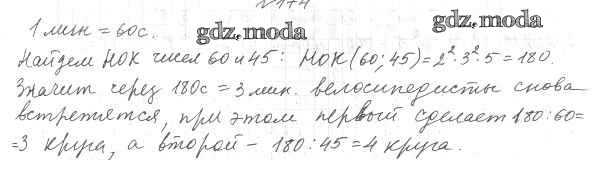 № 174
1 мин = 60с.
gdz.moda
gdz.moda
Найдем НОК чисел 60 и 45: НОК(60; 45) = 2²·3²·5 = 180.
Значит через 180с = 3 мин. велосипедисты снова
встретятся, при этом первый сделает 180:60=
=3 круга, а второй – 180:45=4 круга.